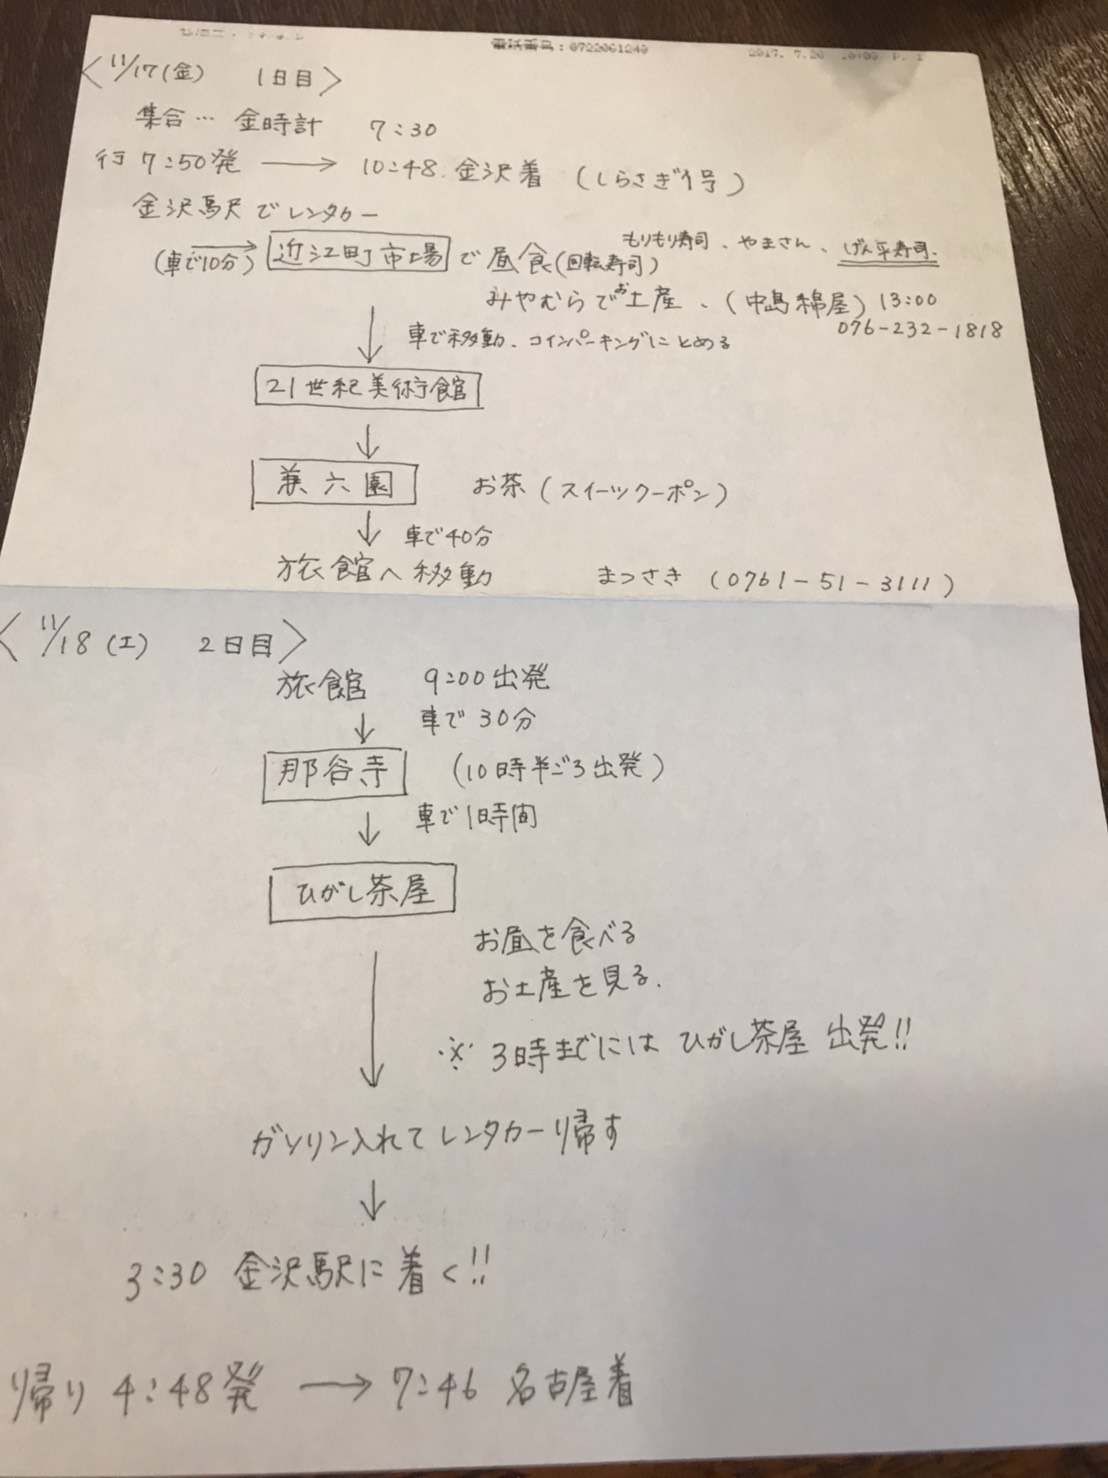 電話番号：0722061240
2017. 7.20
〈 11/17(金) 1日目〉
集合… 金時計 7:30
行 7:50発 → 10:48. 金沢着 (しらさぎ1号)
金沢駅でレンタカー
もりもり寿司、やまさん、げん平寿司.
(車で10分) → 近江町市場で昼食(回転寿司)
みやむらでお土産、(中島綿屋) 13:00
076-232-1818
↓ 車で移動、コインパーキングにとめる
21世紀美術館
↓
兼六園 お茶 (スイーツクーポン)
↓ 車で40分
旅館へ移動 まつさき (0761-51-3111)
〈 11/18 (土) 2日目〉
旅館 9:00出発
↓ 車で30分
那谷寺 (10時半ごろ出発)
↓ 車で1時間
ひがし茶屋
お昼を食べる
お土産を見る.
↓ ※ 3時までには ひがし茶屋 出発!!
ガソリン入れてレンタカー帰す
↓
3:30 金沢駅に着く!!
帰り 4:48発 → 7:46 名古屋着